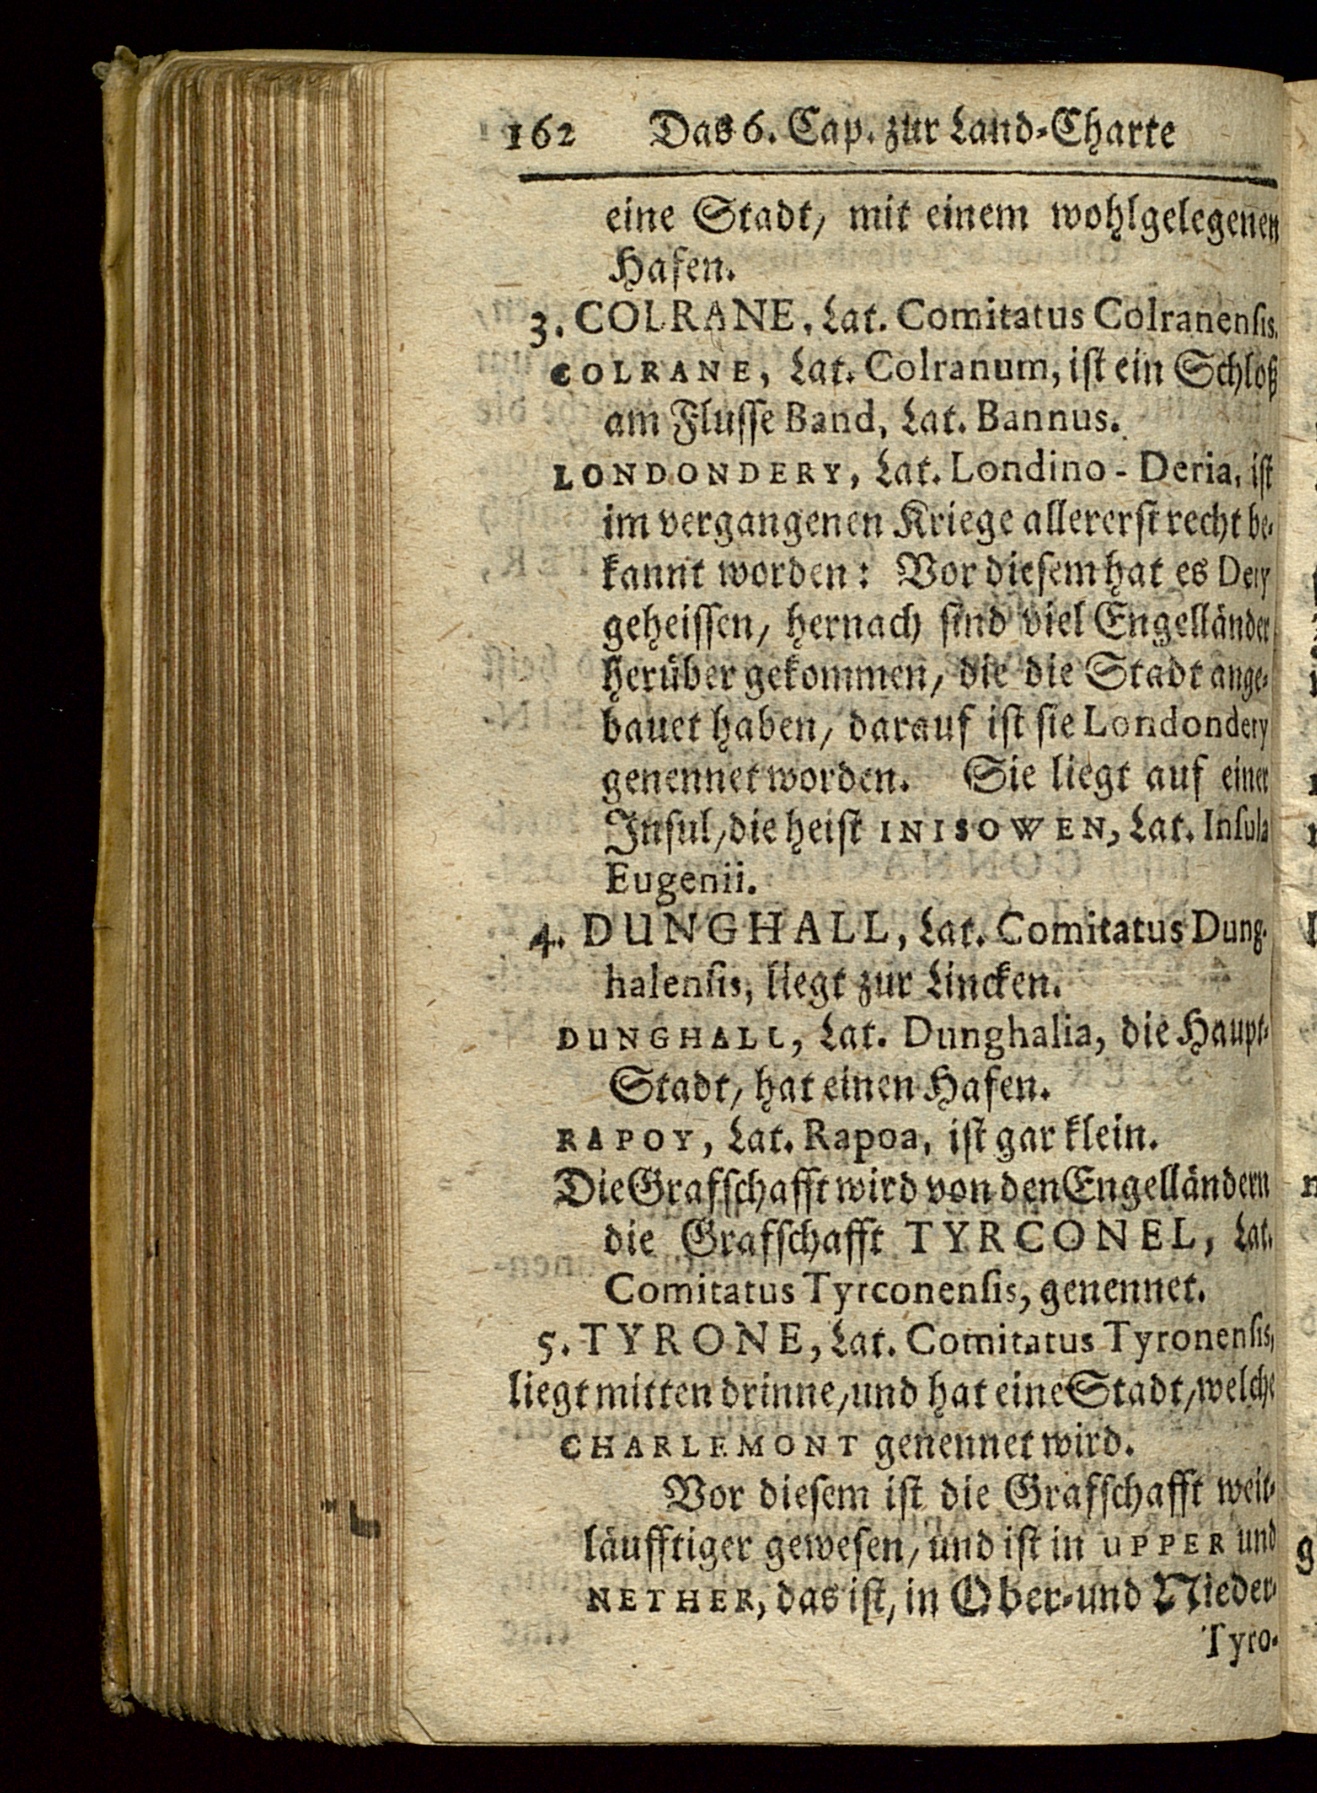 162 Das 6. Cap. zur Land-Charte
eine Stadt/ mit einem wohlgelegenen
Hafen.
3. COLRANE, Lat. Comitatus Colranensis.
COLRANE, Lat. Colranum, ist ein Schloß
am Flusse Band, Lat. Bannus.
LONDONDERY, Lat. Londino-Deria, ist
im vergangenen Kriege allererst recht be-
kannt worden: Vor diesem hat es Dery
geheissen/ hernach sind viel Engelländer
herüber gekommen/ die die Stadt ange-
bauet haben/ darauf ist sie Londondery
genennet worden. Sie liegt auf einer
Insul/ die heist INISOWEN, Lat. Insula
Eugenii.
4. DUNGHALL, Lat. Comitatus Dung-
halensis, liegt zur Lincken.
DUNGHALL, Lat. Dunghalia, die Haupt-
Stadt/ hat einen Hafen.
RAPOY, Lat. Rapoa, ist gar klein.
Die Grafschafft wird von den Engelländern
die Grafschafft TYRCONEL, Lat.
Comitatus Tyrconensis, genennet.
5. TYRONE, Lat. Comitatus Tyronensis,
liegt mitten drinne/ und hat eine Stadt/ welche
CHARLEMONT genennet wird.
Vor diesem ist die Grafschafft weit-
läufftiger gewesen/ und ist in UPPER und
NETHER, das ist/ in Ober- und Nieder-
Tyro-